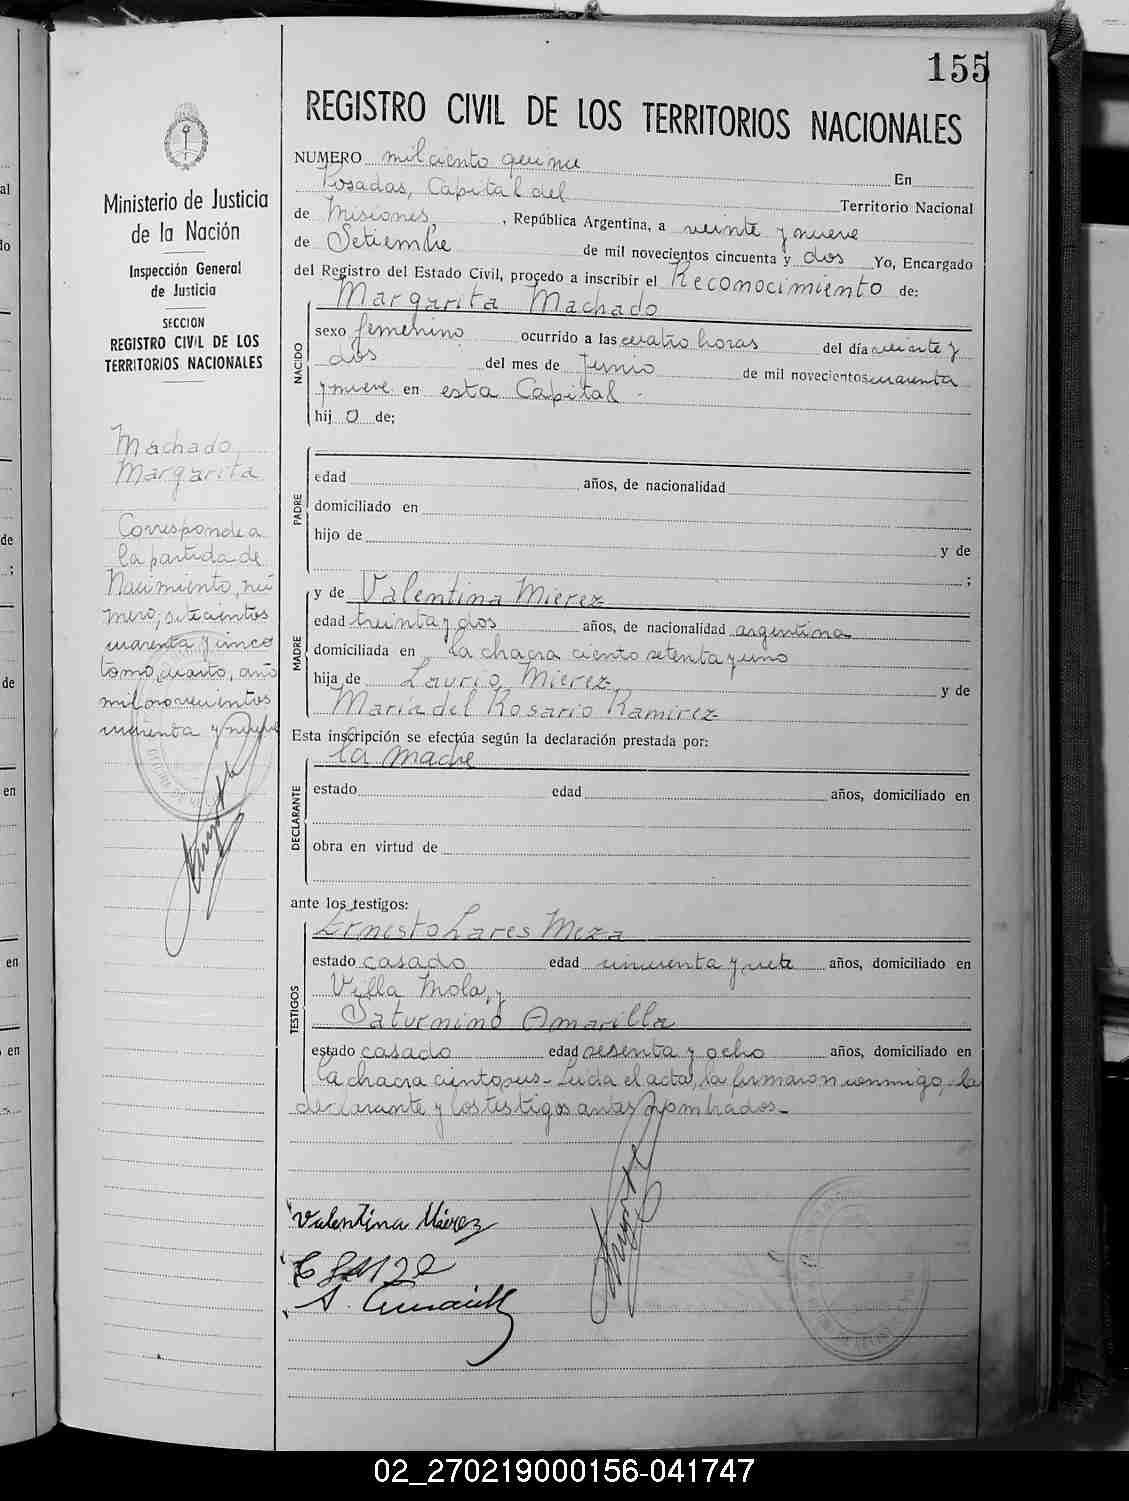 155
REGISTRO CIVIL DE LOS TERRITORIOS NACIONALES
Ministerio de Justicia
de la Nación
Inspección General
de Justicia
SECCION
REGISTRO CIVIL DE LOS
TERRITORIOS NACIONALES
Machado,
Margarita
Corresponde a
la partida de
Nacimiento, nú
mero, setecientos
cuarenta y cinco
tomo, cuarto, año
mil novecientos
cuarenta y nueve
NUMERO mil ciento quince En
Posadas, Capital del Territorio Nacional
de Misiones, , República Argentina, a veinte y nueve
de Setiembre de mil novecientos cincuenta y dos Yo, Encargado
del Registro del Estado Civil, procedo a inscribir el Reconocimiento de:
NACIDO
Margarita Machado
sexo femenino ocurrido a las cuatro horas del día veinte y
dos del mes de Junio de mil novecientos cuarenta
y nueve en esta Capital.
hij o de:
PADRE
edad años, de nacionalidad
domiciliado en
hijo de y de
;
MADRE
y de Valentina Mierez
edad treinta y dos años, de nacionalidad argentina
domiciliada en la chacra ciento setenta y uno
hija de Laurio Mierez y de
María del Rosario Ramirez
Esta inscripción se efectúa según la declaración prestada por:
DECLARANTE
la madre
estado edad años, domiciliado en
obra en virtud de
ante los testigos:
TESTIGOS
Ernesto Lares Meza
estado casado edad cincuenta y siete años, domiciliado en
Villa Mola, y
Saturnino Amarilla
estado casado edad sesenta y ocho años, domiciliado en
la chacra ciento seis - Leída el acta, la firmaron conmigo, la
declarante y los testigos antes nombrados -
Valentina Mierez
al
do
de
;
de
en
en
en
02_270219000156-041747